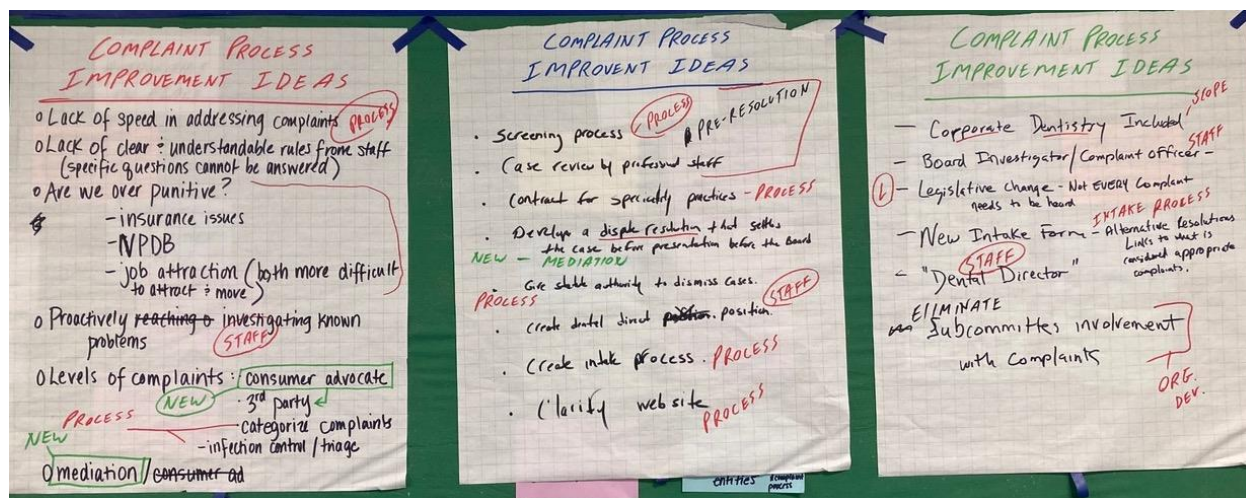 COMPLAINT PROCESS
IMPROVEMENT IDEAS
o Lack of speed in addressing complaints PROCESS
o Lack of clear & understandable rules frome staff
(specific questions cannot be answered)
o Are we over punitive?
- insurance issues
- NPDB
- job attraction (both more difficult
to attract & move)
o Proactively reaching o investigating known
problems STAFF
o Levels of complaints: consumer advocate
NEW · 3rd party
PROCESS · categorize complaints
- infection control / triage
NEW
o mediation / consumer ad
COMPLAINT PROCESS
IMPROVENT IDEAS
· Screening process PROCESS PRE-RESOLUTION
· Case review by professional staff
· Contract for specialty practices - PROCESS
· Develop a dispute resolution that settles
the case before presentation before the Board
NEW - MEDIATION
· Give staff authority to dismiss cases.
PROCESS STAFF
· Create dental direct position. position.
· Create intake process. PROCESS
· Clarify website PROCESS
entities
process
COMPLAINT PROCESS
IMPROVEMENT IDEAS
SCOPE
- Corporate Dentistry Included
STAFF
- Board Investigator/Complaint officer -
L - Legislative Change - Not EVERY Complaint
needs to be heard
INTAKE PROCESS
- New Intake Form - Alternative Resolutions
Links to what is
considered appropriate
complaints.
STAFF
- "Dental Director"
ELIMINATE
Subcommittes involvement
with Complaints
ORG.
DEV.